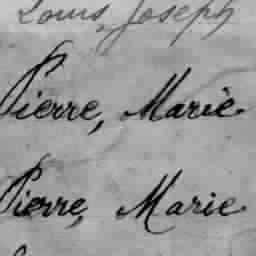 Louis, Joseph
Pierre, Marie
Pierre, Marie